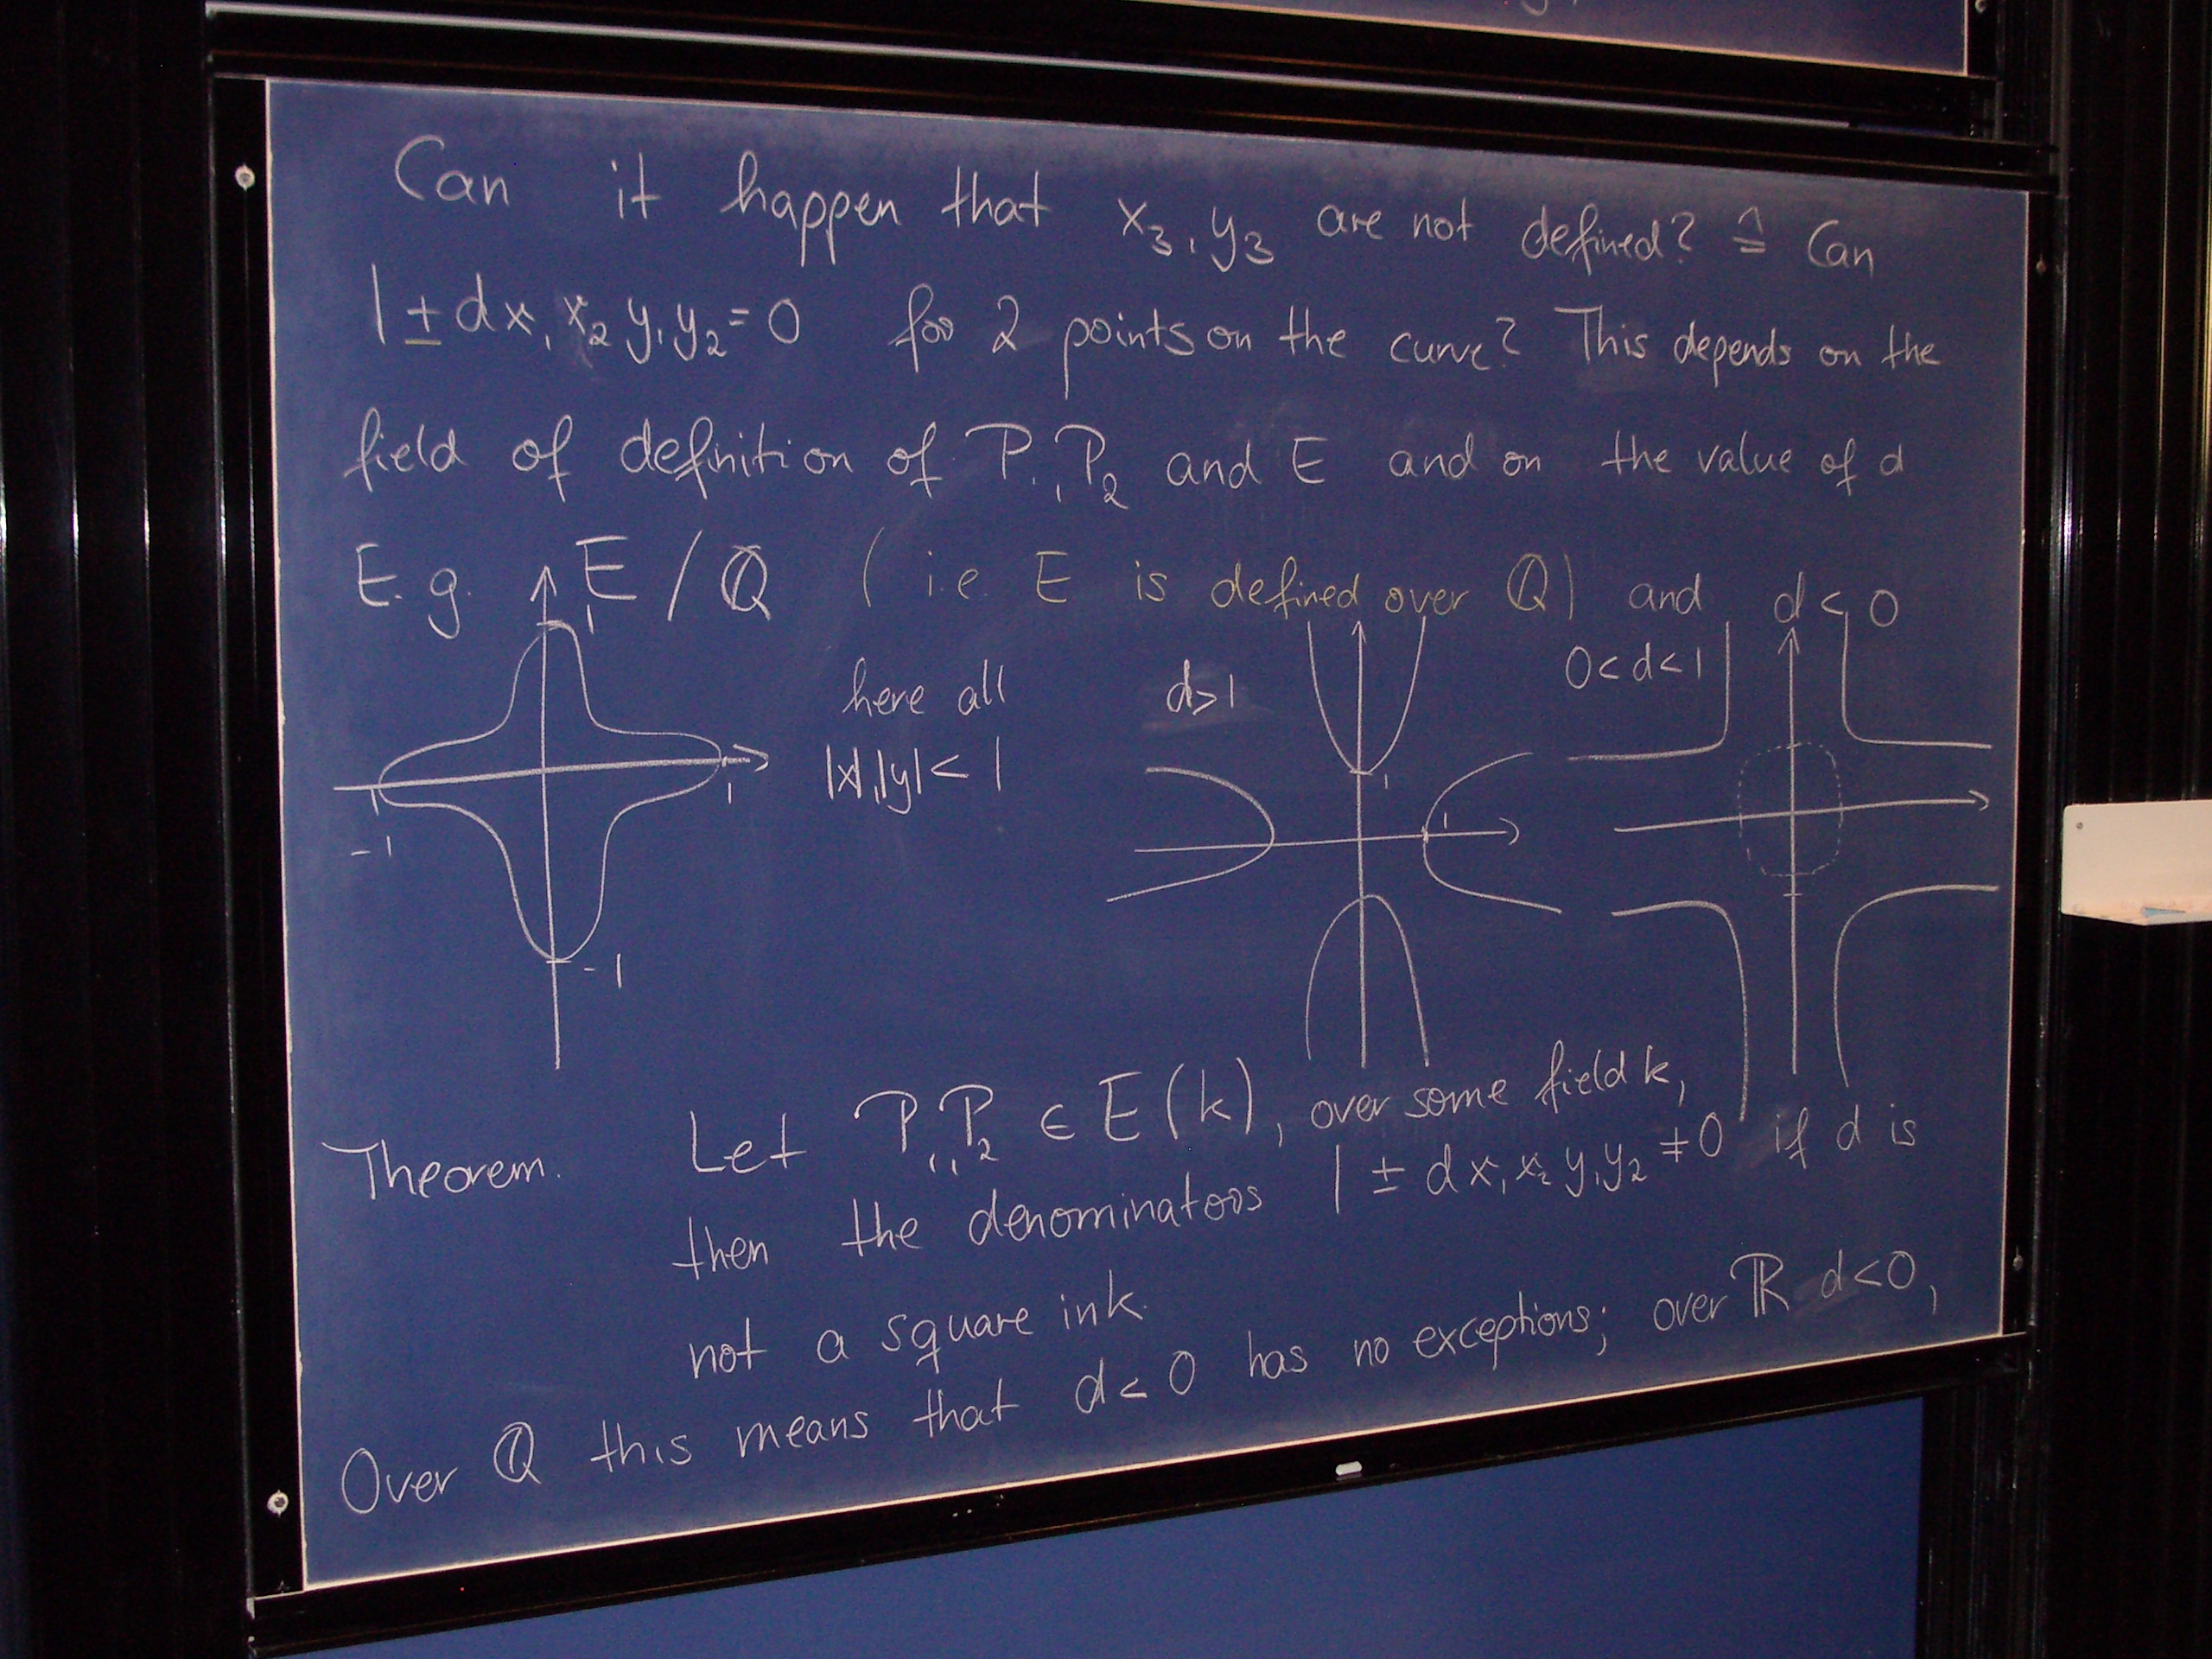 Can it happen that x₃, y₃ are not defined? ≙ Can
1 ± dx₁x₂y₁y₂ = 0 for 2 points on the curve? This depends on the
field of definition of P₁, P₂ and E and on the value of d
E.g. E / ℚ ( i.e. E is defined over ℚ) and d < 0
1
here all
|x|,|y| < 1
-1
1
-1
d>1
1
1
0<d<1
Theorem. Let P₁, P₂ ∈ E(k), over some field k,
then the denominators 1 ± dx₁x₂y₁y₂ ≠ 0 if d is
not a square in k.
Over ℚ this means that d < 0 has no exceptions; over ℝ d<0,